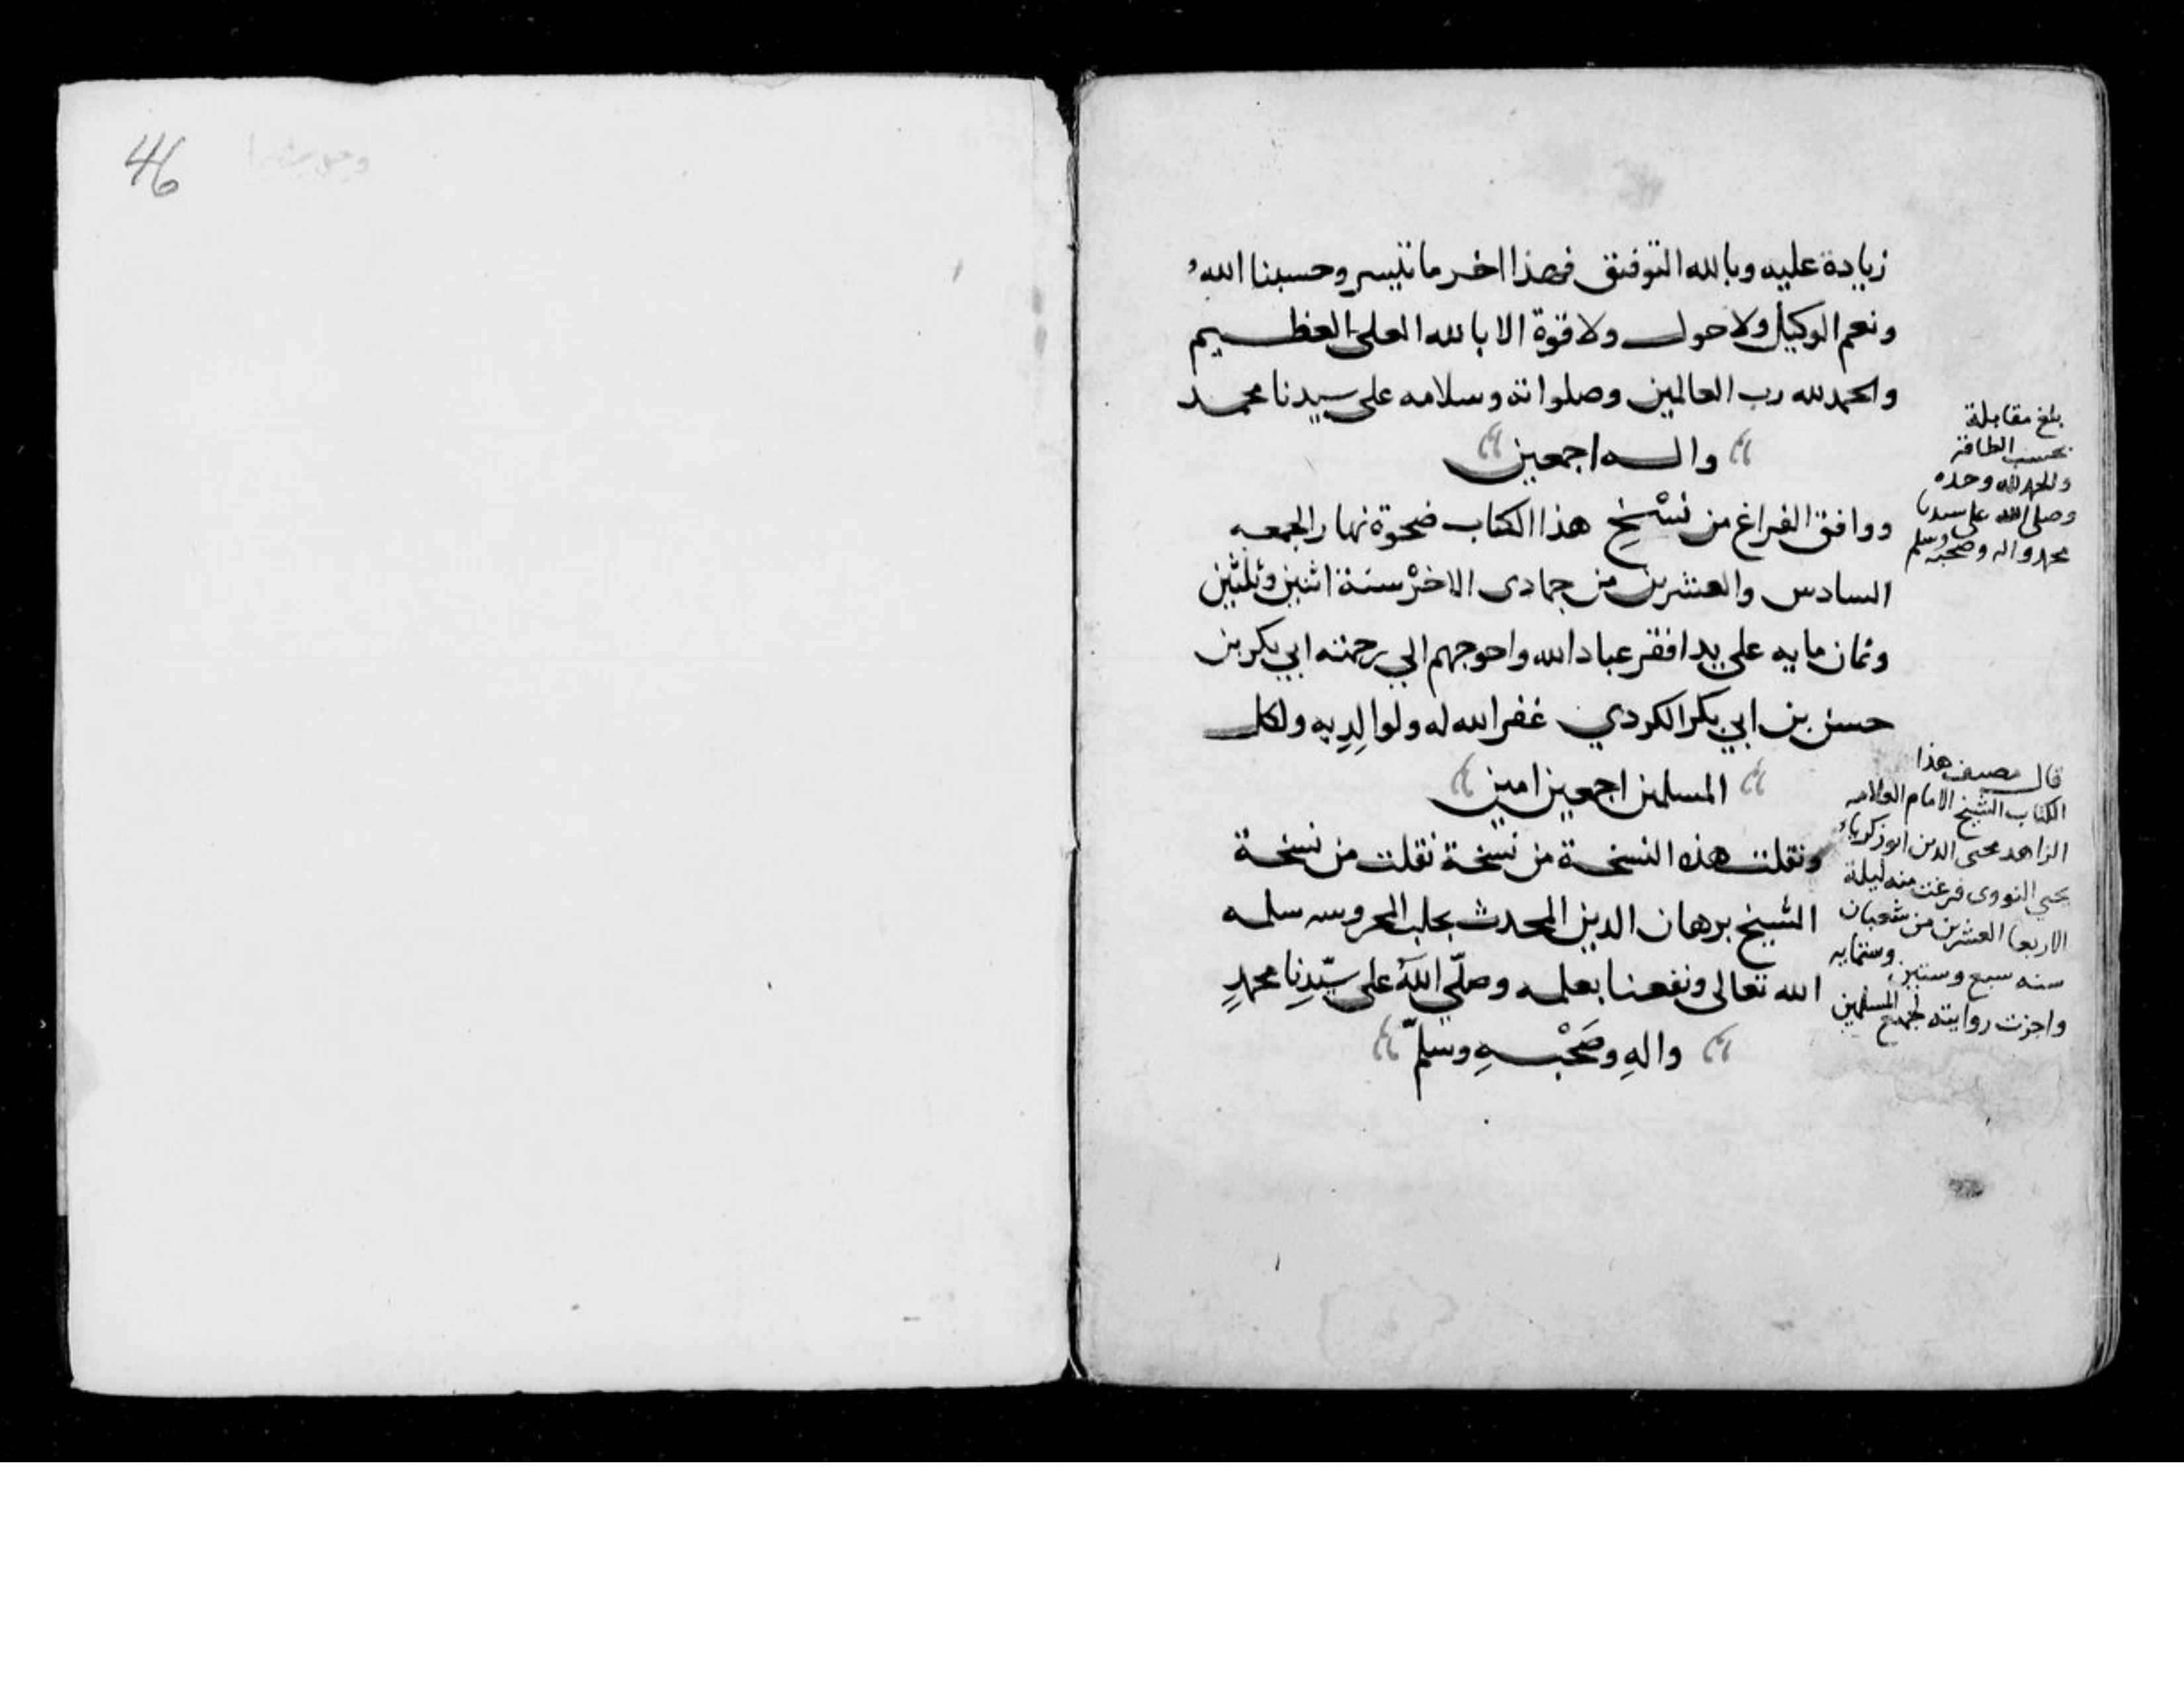 زيادة عليه وبالله التوفيق فهذا اخر ما تيسر وحسبنا الله
ونعم الوكيل ولا حول ولا قوة الا بالله العلى العظيم
والحمد لله رب العالمين وصلواته وسلامه على سيدنا محمد
واله اجمعين
ووافق الفراغ من نسْخِ هذا الكتاب ضحوة نهار الجمعه
السادس والعشرين من جمادى الاخرْ سنة اثنين وثلثين
وثمان مايه على يد افقر عباد الله واحوجهم الي رحمته ابي بكر بن
حسن بن ابي بكر الكردي غفر الله له ولوالِدِيه ولكل
المسلمين اجمعين امين
ونقلت هذه النسخة من نسخة نقلت من نسخة
الشيخ برهان الدين المحدث بحلب المحروسه سلمه
الله تعالى ونفعنا بعلمه وصلّي اللهُ على سيّدِنا محمدٍ
والهِ وصَحْبهِ وسلمّ
بلغ مقابلة
بحسب الطاقة
والحمد لله وحده
وصلى الله على سيدنا
محمد واله وصحبه وسلم
قال مصنف هذا
الكتاب الشيخ الامام العلامه
الزاهد محيى الدين ابو زكرياء
يحيي النووى فرغت منه ليلة
الاربعا العشرين من شعبان
سنه سبع وستين وستمايه
واجزت روايته لجميع المسلمين
46